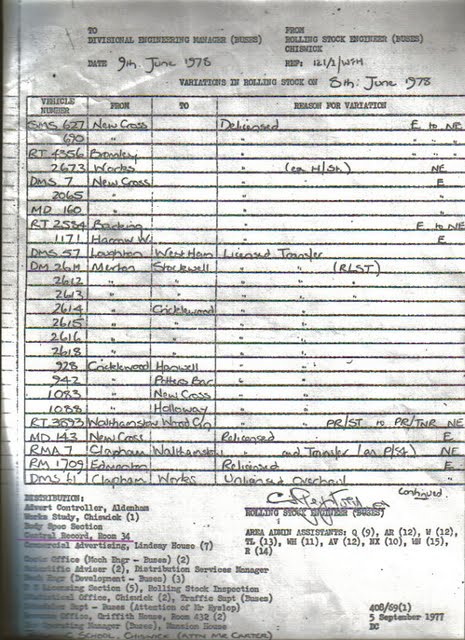 TO FROM
DIVISIONAL ENGINEERING MANAGER (BUSES) ROLLING STOCK ENGINEER (BUSES)
CHISWICK
DATE 9th June 1978 REF: 121/1/WFH
VARIATIONS IN ROLLING STOCK ON 8th: June 1978
VEHICLE NUMBER FROM TO REASON FOR VARIATION
SMS 627 New Cross Delicensed E to NE
690 " " " " "
RT 4356 Bromley " " " "
2673 Works " (ex H/St.) NE
DMS 7 New Cross " E
2065 " " "
MD 160 " " "
RT 2534 Barking " E to NE
1171 Harrow W. " E
DMS 57 Loughton West Ham Licensed Transfer
DM 2611 Merton Stockwell " " (RLST)
2612 " " " " "
2613 " " " "
2614 " Cricklewood " "
2615 " " " "
2616 " " " "
2618 " " " "
928 Cricklewood Hanwell " "
942 " Potters Bar " "
1083 " New Cross " "
1088 " Holloway " "
RT 3893 Walthamstow Wood Gn " " PR/ST to PR/TNR NE
MD 143 New Cross Relicensed E
RMA 7 Clapham Walthamstow " and Transfer (ex P/St) NE
RM 1709 Edmonton Relicensed E
DMS 61 Clapham Works Unlicensed Overhaul
Continued
DISTRIBUTION:
Advert Controller, Aldenham ROLLING STOCK ENGINEER (BUSES)
Works Study, Chiswick (1)
Body Spec Section AREA ADMIN ASSISTANTS: Q (9), AR (12), W (12),
Central Record, Room 34 TL (13), WH (11), AV (12), NX (10), UN (15),
Commercial Advertising, Lindsey House (7) R (14)
Office (Mech Engr - Buses) (2)
Scientific Adviser (2), Distribution Services Manager
Mech Engr (Development - Buses) (3)
Licensing Section (5), Rolling Stock Inspection
Statistical Office, Chiswick (2), Traffic Supt (Buses)
Supt - Buses (Attention of Mr Hyslop) 408/69(1)
Office, Griffith House, Room 432 (2) 5 September 1977
Operating Manager (Buses), Mansion House DC
SCHOOL, CHISWICK (ATTN MR CARTER)